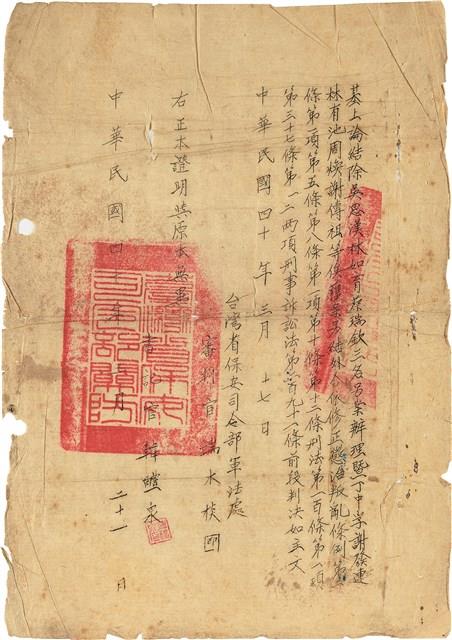 基上論結除吳思漢林如堉蔡瑞欽三名另案辦理暨丁中孚謝發連
林有池周煥謝傳祖等俟獲案另結外合依修正懲治叛亂條例第
條第一項第五條第八條第一項第十條第十二條刑法第一百條第一項
第三十七條第一二兩項刑事訴訟法第二百九十一條前段判決如主文
中華民國四十年三月十七日
台灣省保安司令部軍法處
審判官 水 國
右正本證明與原本無異
書記官
中華民國四十年 月二十一日
臺灣省保安司令部關防